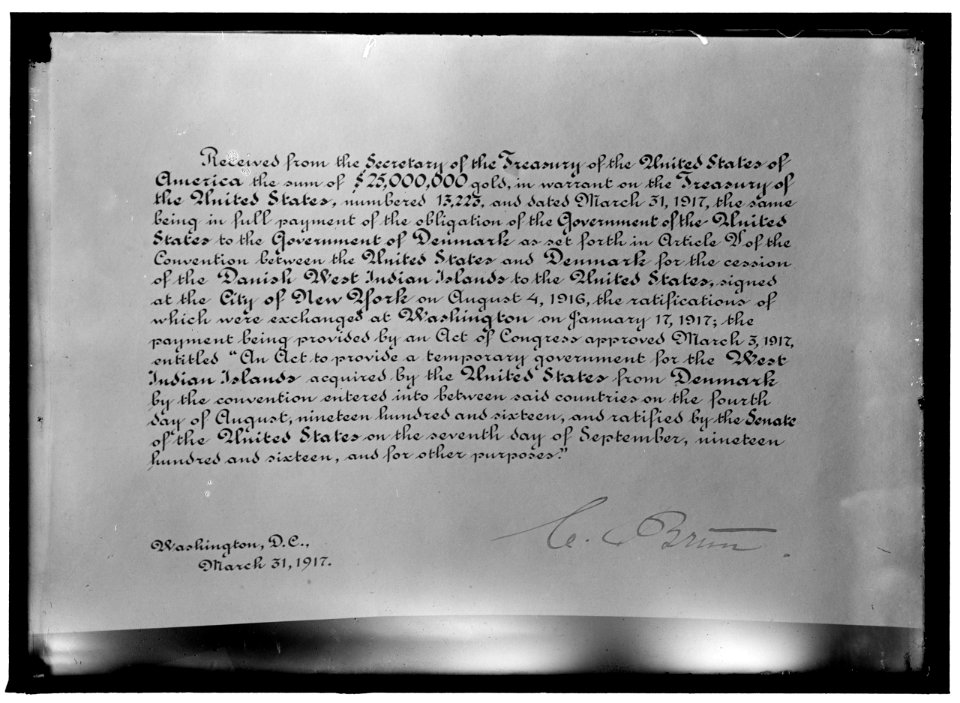 Received from the Secretary of the Treasury of the United States of
America the sum of $25,000,000 gold, in warrant on the Treasury of
the United States, numbered 13,223, and dated March 31, 1917, the same
being in full payment of the obligation of the Government of the United
States to the Government of Denmark as set forth in Article V of the
Convention between the United States and Denmark for the cession
of the Danish West Indian Islands to the United States, signed
at the City of New York on August 4, 1916, the ratifications of
which were exchanged at Washington on January 17, 1917; the
payment being provided by an Act of Congress approved March 3, 1917,
entitled "An Act to provide a temporary government for the West
Indian Islands acquired by the United States from Denmark
by the convention entered into between said countries on the fourth
day of August, nineteen hundred and sixteen, and ratified by the Senate
of the United States on the seventh day of September, nineteen
hundred and sixteen, and for other purposes."
C. Brun.
Washington, D.C.,
March 31, 1917.